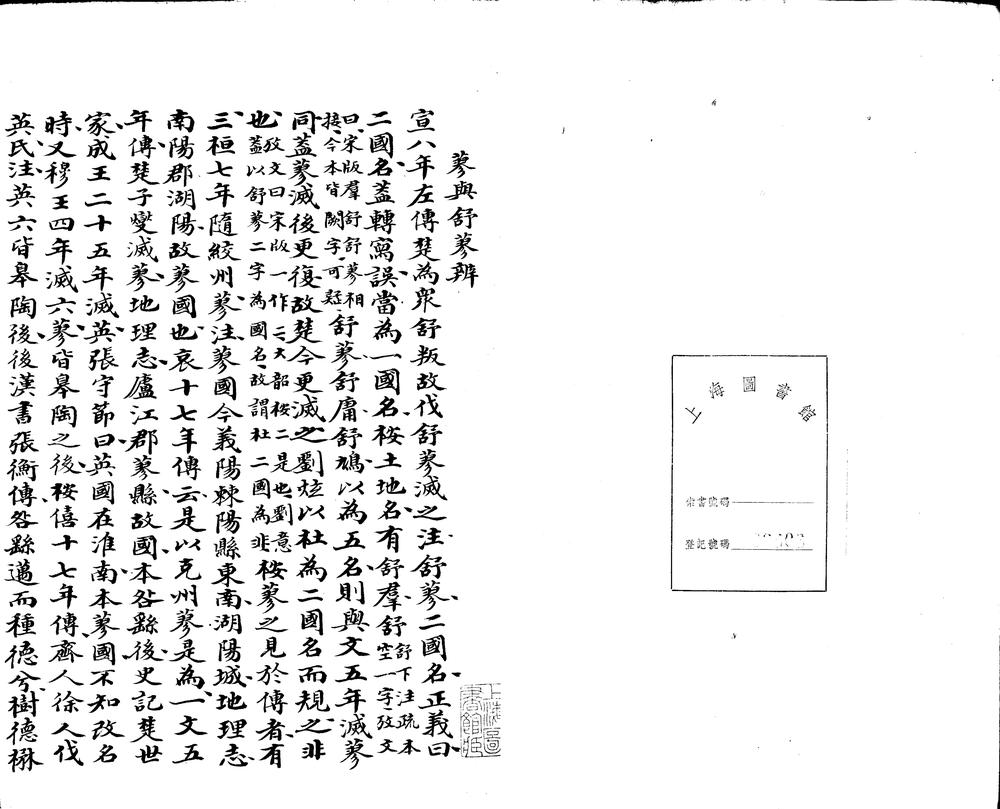 上海圖書館
索書號碼
登記號碼
蓼與舒蓼辨
宣八年左傳楚為衆舒叛故伐舒蓼滅之注舒蓼二國名正義曰
二國名蓋轉寫誤當為一國名桉土地名有舒羣舒舒下注疏本空一字攷文
曰宋版羣舒舒蓼相接今本皆闕字可疑舒蓼舒庸舒鳩以為五名則與文五年滅蓼
同蓋蓼滅後更復故楚今更滅之劉炫以杜為二國名而規之非
也攷文曰宋版一作二大韶桉二是也劉意蓋以舒蓼二字為國名故謂杜二國為非桉蓼之見於傳者有
三桓七年隨絞州蓼注蓼國今義陽棘陽縣東南湖陽城地理志
南陽郡湖陽故蓼國也哀十七年傳云是以克州蓼是為一文五
年傳楚子燮滅蓼地理志廬江郡蓼縣故國本咎繇後史記楚世
家成王二十五年滅英張守節曰英國在淮南本蓼國不知改名
時又穆王四年滅六蓼皆皋陶之後桉僖十七年傳齊人徐人伐
英氏注英六皆皋陶後後漢書張衡傳咎繇邁而種德兮樹德楙
上海圖書館藏